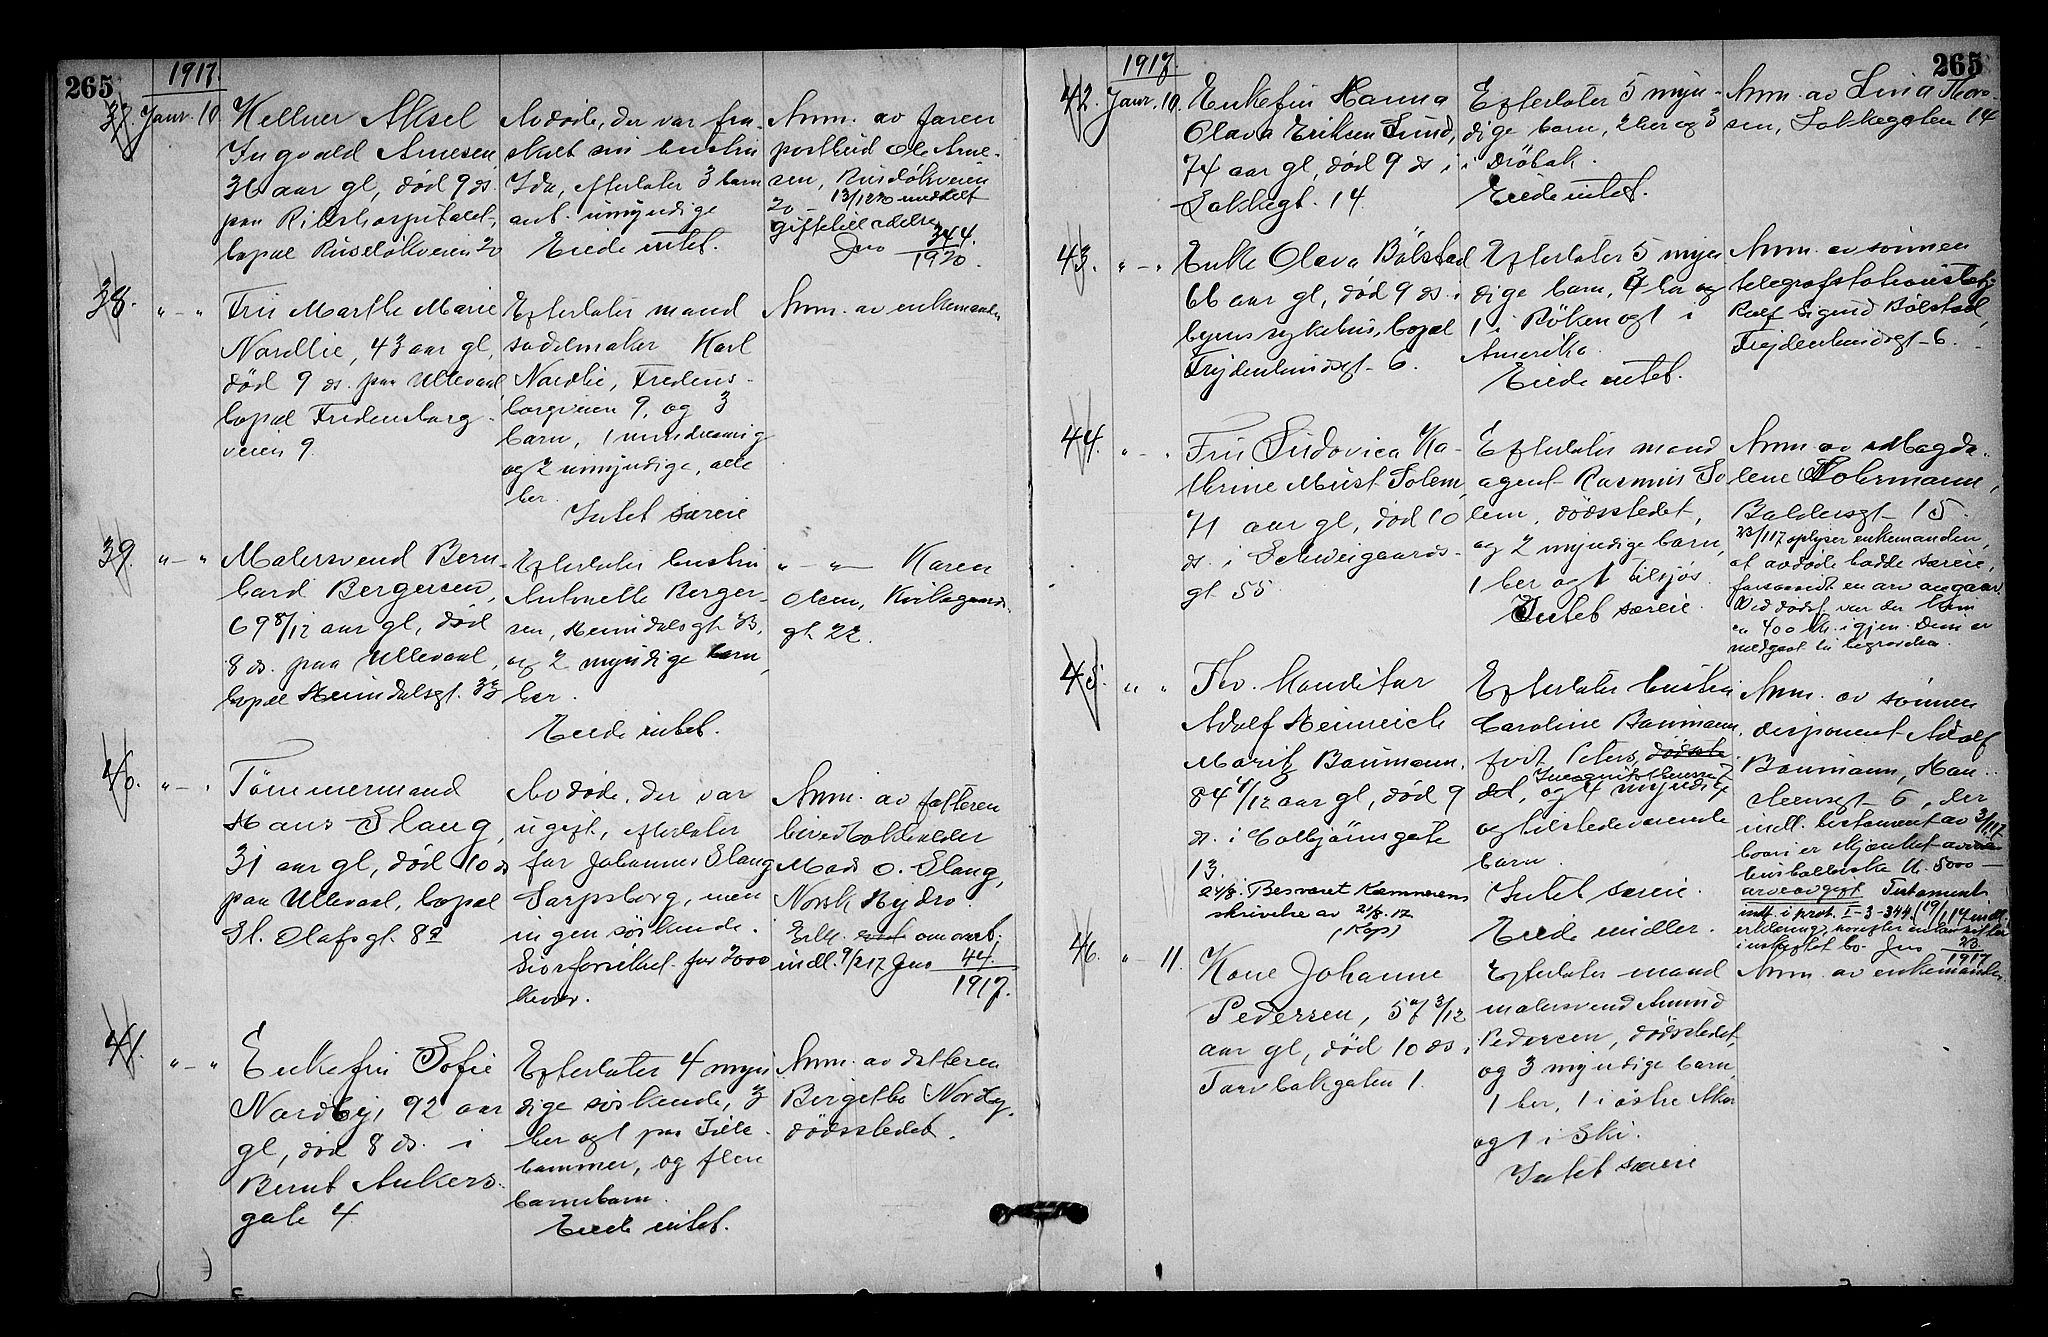 265
1917.
37. Janr. 10.
Kellner Aksel
Ingvald Arnesen
36 aar gl, død 9 ds.
paa Rikshospitalet,
bopæl Ruseløkveien 20
Avdøde, der var fra-
skilt sin hustru
Ida, efterlater 3 barn
ant. umyndige
Eiede intet.
Anm. av faren
postbud Ole Arne-
sen, Ruseløkveien
20 13/12 20 meddelt
giftetilladelse
Jno 344.
1920.
38. " — "
Fru Marthe Marie
Nordlie, 43 aar gl,
død 9 ds. paa Ullevaal
bopæl Fredensborg-
veien 9.
Efterlater mand
sadelmaker Karl
Nordlie, Fredens-
borgveien 9, og 3
barn, 1 mindreaarig
og 2 umyndige, alle
her.
Intet særeie
Anm. av enkemanden
39. " — "
Malersvend Bern-
hard Bergersen,
69 8/12 aar gl, død
8 ds. paa Ullevaal,
bopæl Heimdalsgt. 33
Efterlater hustru
Antonette Berger-
sen, Heimdalsgt. 33,
og 2 myndige barn,
her.
Eiede intet.
" — " Karen
Olsen,
gt. 22.
40. " — "
Tømmermand
Hans Slang,
31 aar gl, død 10 ds
paa Ullevaal, bopæl
St. Olafsgt. 8a
Avdøde, der var
ugift, efterlater
far Johannes Slang
Sarpsborg, men
ingen søskende.
Livsforsikret for 2000
kroner.
Anm. av fetteren
hovedbokholder
Mads O. Slang,
Norsk Hydro.
Erkl. om overt.
indl. 9/2 17 Jno 44.
1917.
41. " — "
Enkefru Sofie
Nordby, 92 aar
gl, død 8 ds. i
Bernt Ankers
gate 4.
Efterlater 4 myn-
dige søskende, 3
her og 1 paa Lille-
hammer, og flere
barnebarn.
Eiede intet.
Anm. av datteren
Bergithe Nordby,
dødsstedet.
265
1917.
42. Janr. 10.
Enkefru Hanna
Olava Eriksen Lund,
74 aar gl, død 9 ds i
Sakkegt. 14
Efterlater 5 myn-
dige barn, 2 her og 3
i Drøbak.
Eiede intet.
Anm. av Lina Thore-
sen, Lakkegaten 14
43. " — "
Enke Olava Bølstad
66 aar gl, død 9 ds. i
byens sykehus, bopæl
Frydenlundsgt. 6.
Efterlater 5 myn-
dige barn, 3 her og
1 i Røken og 1 i
Amerika.
Eiede intet.
Anm. av sønnen
telegrafstationist
Rolf Sigurd Bølstad,
Frydenlundsgt. 6.
44. " — "
Fru Ludovica Ka-
thrine Müst Solem,
71 aar gl, død 10
ds. i Schweigaards-
gt. 55.
Efterlater mand
agent Rasmus So-
lem, dødsstedet,
og 2 myndige barn,
1 her og 1 tilsjøs.
Intet særeie.
Anm. av Magda-
lene Nohrmann,
Baldersgt. 15.
23/1 17 oplyser enkemanden,
at avdøde hadde særeie,
forsaavidt en arv angaar.
Ved dødsf. var der kun
ca 400 kr. igjen. Dem er
medgaat til begravelsen.
45. " "
Fhv. Konditor
Adolf Heinrich
Moritz Baumann,
84 1/12 aar gl, død 9
ds. i Colbjørnsgate
13.
24/8. Besvaret Kæmnerens
skrivelse av 21/8. 17
(Kop)
Efterlater hustru
Caroline Baumann,
født Peters, dødsste-
det, og 4 myndige
og tilstedeværende
barn.
Intet særeie.
Eiede midler.
Anm. av sønnen
disponent Adolf
Baumann, Han-
steensgt. 6, der
indl. testament av 3/1 17
hvori er skjænket
Kr. 5000 —
arveavgift. Testament
indf. i prot. I-3-344. (19/1 17 indl.
erklæring, hvorefter enken sitter
i uskiftet bo. Jno 23.
1917
46. " — 11.
Kone Johanne
Pedersen, 57 3/12
aar gl, død 10 ds. i
Torvbakgaten 1.
Efterlater mand
malersvend Amund
Pedersen, dødsstedet,
og 3 myndige barn,
1 her, 1 i østre Aker
og 1 i Ski.
Intet særeie
Anm. av enkemanden.